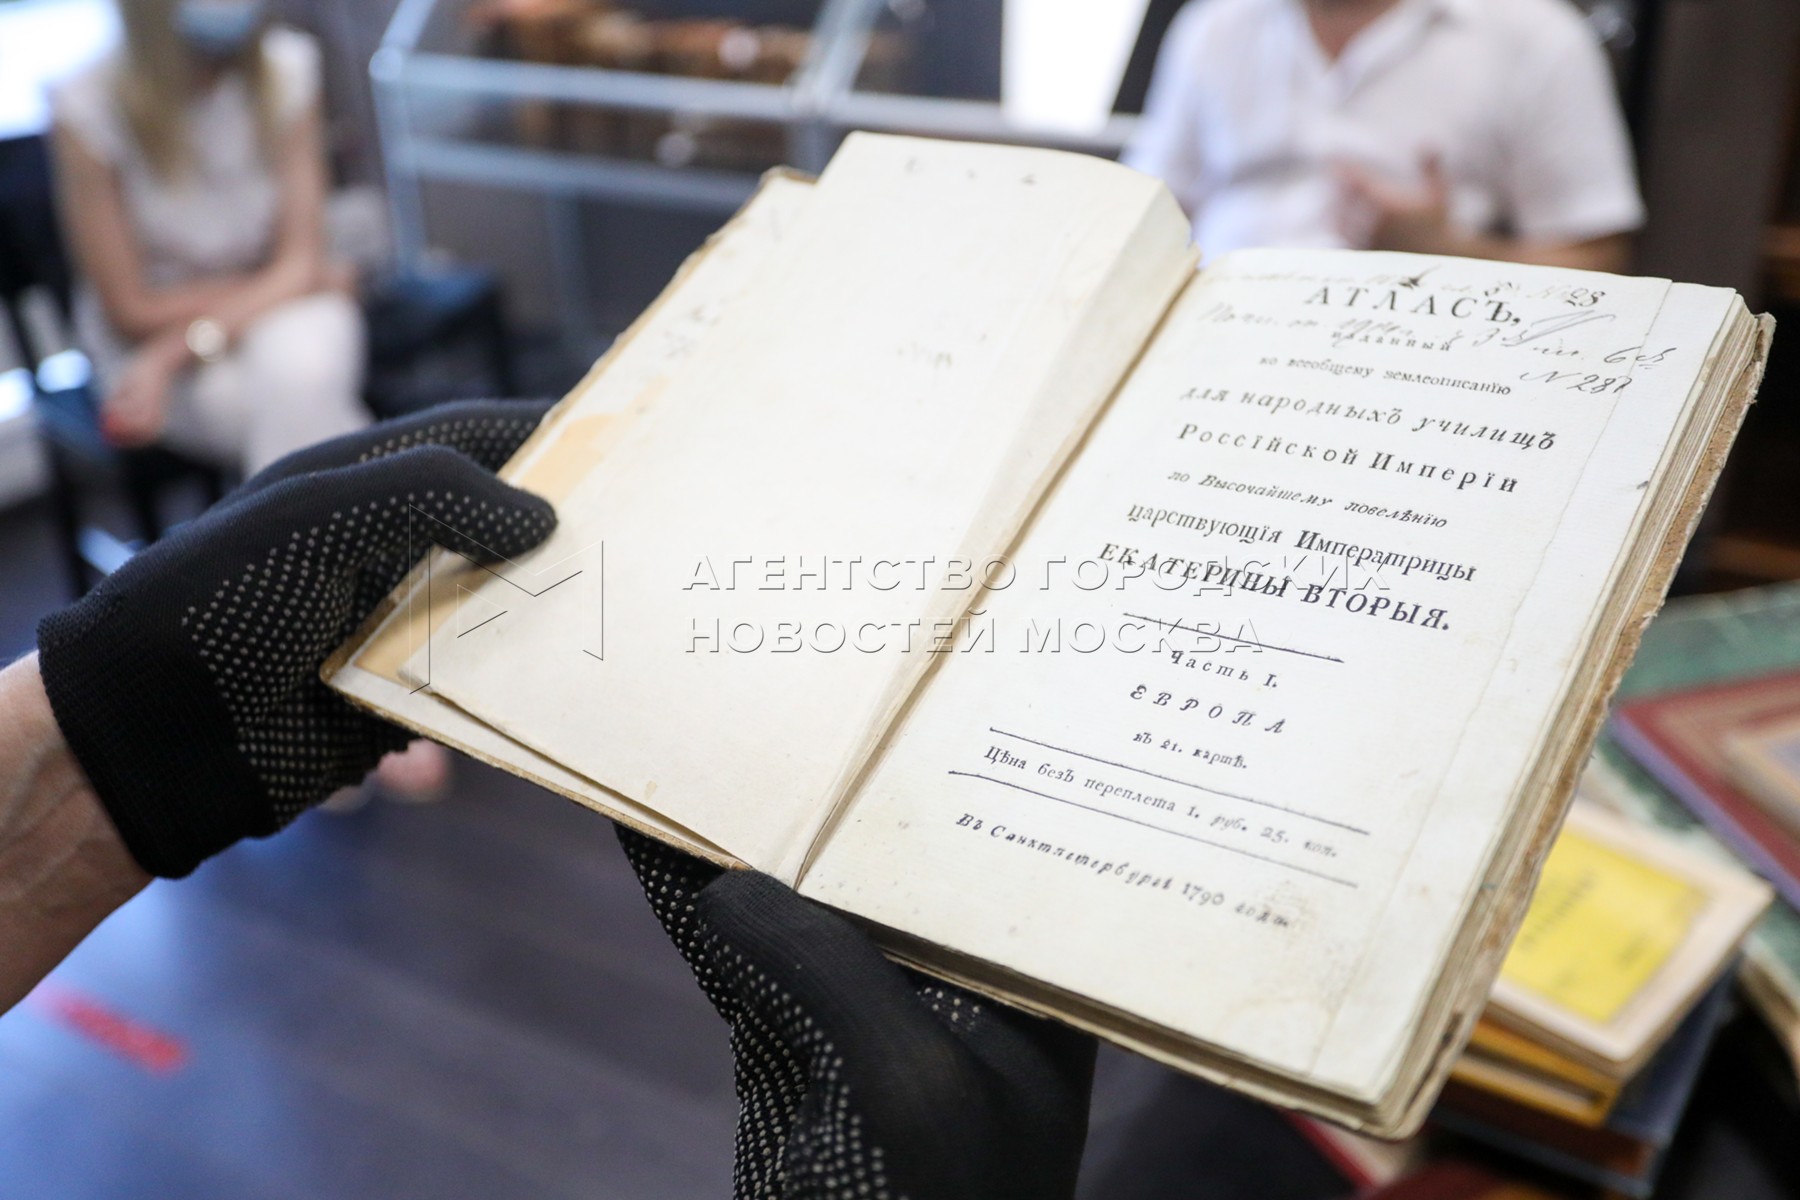 № 28
АТЛАСЪ,
изданный
ко всеобщему землеописанїю
для народныхъ училищъ
Россїйской Имперїи
по Высочайшему повелѣнїю
царствующїя Императрицы
ЕКАТЕРИНЫ ВТОРЫЯ.
Часть I.
ЕВРОПА
въ 21. картѣ.
Цѣна безъ переплета 1. руб. 25. коп.
Въ Санктпетербургѣ 1790 года.
N 287
АГЕНТСТВО ГОРОДСКИХ
НОВОСТЕЙ МОСКВА